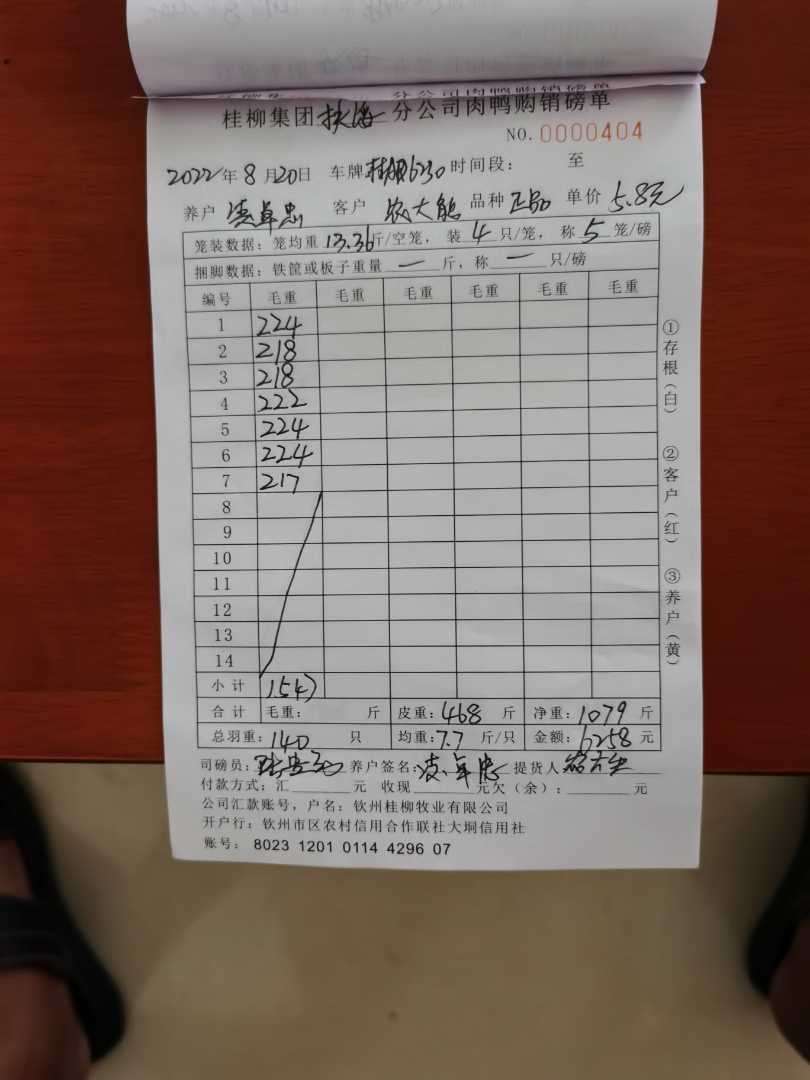 桂柳集团 分公司肉鸭购销磅单
NO.0000404
2022年8月20日 车牌 6230 时间段: 至
养户 凌卓忠 客户 农大能 品种 正品 单价 5.8元
笼装数据:笼均重 13.36斤/空笼,装 4 只/笼,称 5 笼/磅
捆脚数据:铁筐或板子重量 一 斤,称 一 只/磅
编号 毛重 毛重 毛重 毛重 毛重 毛重
1 224
2 218
3 218
4 222
5 224
6 224
7 217
8
9
10
11
12
13
14
小计 1547
合计 毛重: 斤 皮重:468 斤 净重:1079 斤
总羽重:140 只 均重:7.7 斤/只 金额:6258 元
司磅员: 养户签名:凌卓忠 提货人
付款方式:汇 元 收现 元欠(余): 元
公司汇款账号,户名:钦州桂柳牧业有限公司
开户行:钦州市区农村信用合作联社大垌信用社
账号: 8023 1201 0114 4296 07
①存根(白)
②客户(红)
③养户(黄)